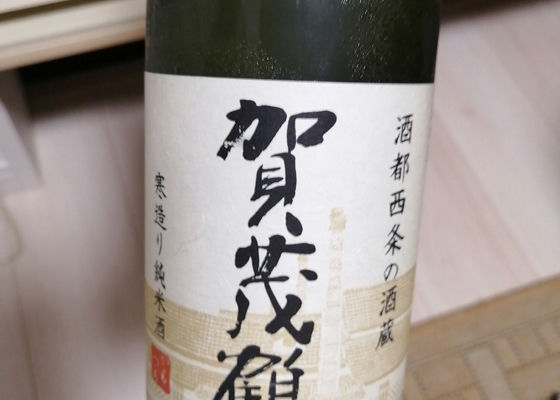 酒都西条の酒蔵
賀茂鶴
寒造り純米酒